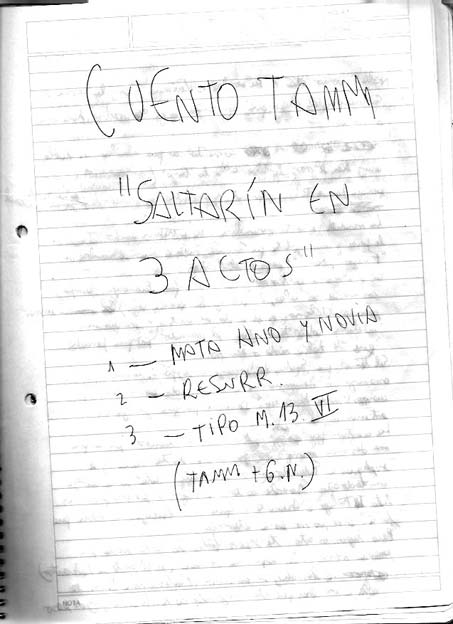 CUENTO TAMM
"SALTARÍN EN
3 ACTOS"
1 — MATA HNO Y NOVIA
2 — RESURR.
3 — TIPO M.13 VI
(TAMM + G.N.)
NOTA